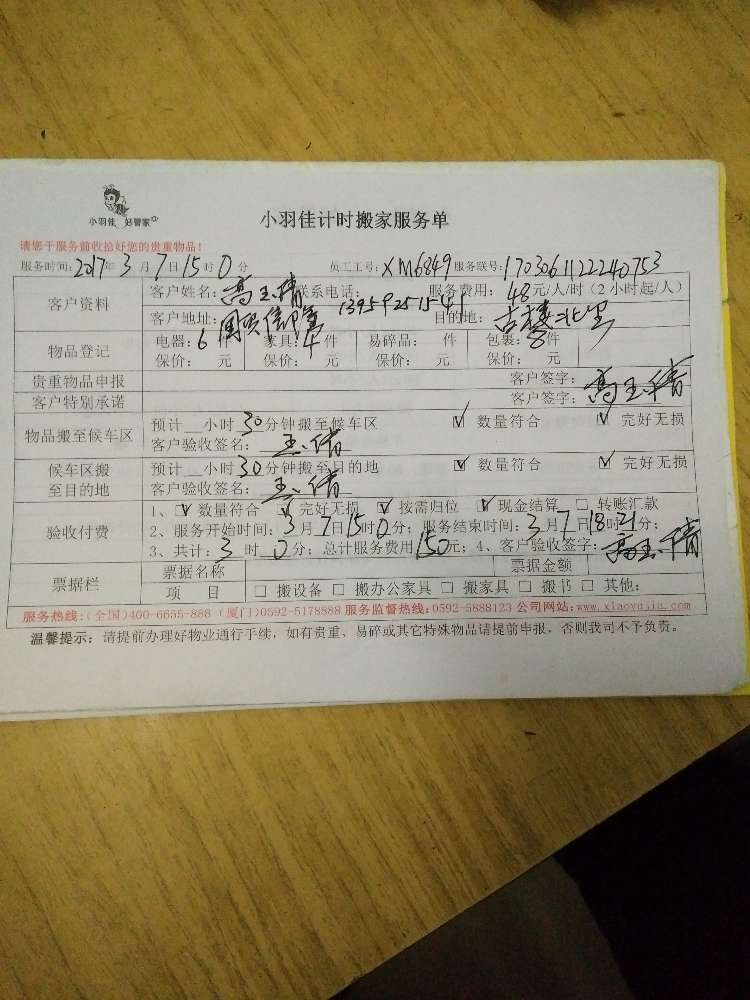 小羽佳 好管家
小羽佳计时搬家服务单
请您于服务前收拾好您的贵重物品！
服务时间:2017年3月7日15时0分 员工工号:XM6849 服务联号:170306112224 0753
客户资料 客户姓名:高玉倩 联系电话:13959251541 服务费用:48元/人/时（2小时起/人）
客户地址: 目的地:古楼北里
物品登记 电器:6件 家具:4件 易碎品: 件 包裹:8件
保价: 元 保价: 元 保价: 元 保价: 元
贵重物品申报 客户签字:高玉倩
客户特别承诺 客户签字:
物品搬至候车区 预计__小时30分钟搬至候车区 ☑ 数量符合 ☑ 完好无损
客户验收签名: 玉倩
候车区搬至目的地 预计__小时30分钟搬至目的地 ☑ 数量符合 ☑ 完好无损
客户验收签名: 玉倩
验收付费 1、☑ 数量符合 ☑ 完好无损 ☑ 按需归位 ☑ 现金结算 □ 转账汇款
2、服务开始时间:3月7日15时0分；服务结束时间:3月7日18时21分；
3、共计:3时0分；总计服务费用150元；4、客户验收签字:高玉倩
票据栏 票据名称 票据金额
项 目 □ 搬设备 □ 搬办公家具 □ 搬家具 □ 搬书 □ 其他:
服务热线:(全国)400-6655-888 (厦门)0592-5178888 服务监督热线:0592-5888123 公司网站:www.xiaoyujia.com
温馨提示：请提前办理好物业通行手续，如有贵重、易碎或其它特殊物品请提前申报，否则我司不予负责。